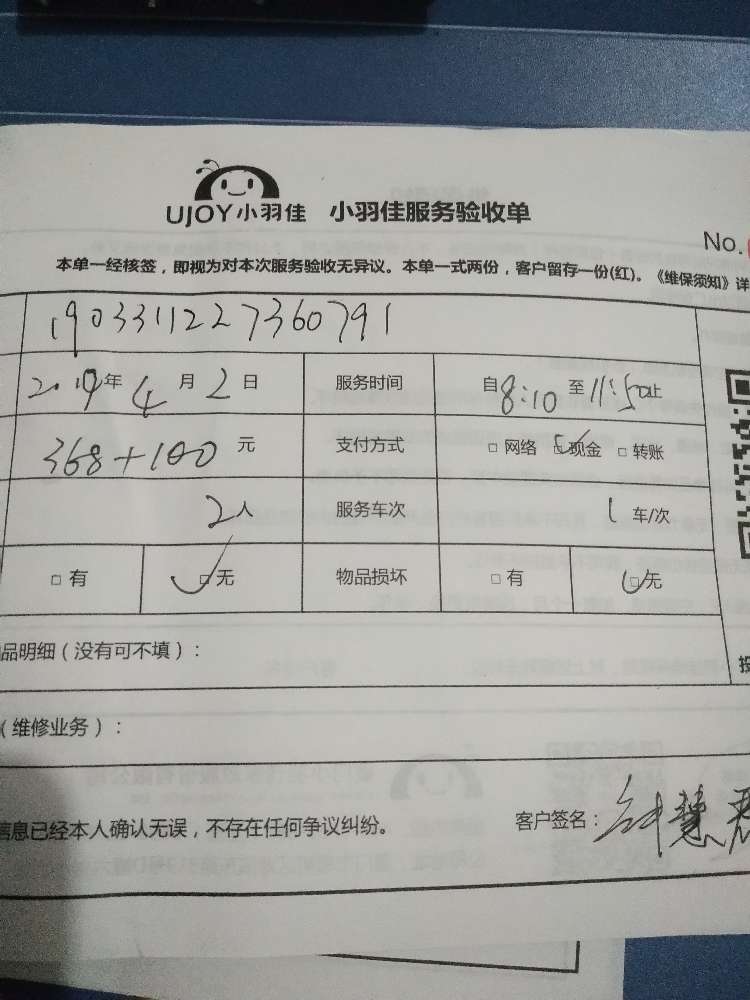 UJOY小羽佳 小羽佳服务验收单
No.
本单一经核签，即视为对本次服务验收无异议。本单一式两份，客户留存一份(红)。《维保须知》详
1903311227360791
2019年4月2日 服务时间 自8:10至11:50止
368+100元 支付方式 □网络 □现金 □转账
2人 服务车次 1车/次
□有 □无 物品损坏 □有 □无
品明细（没有可不填）：
（维修业务）：
信息已经本人确认无误，不存在任何争议纠纷。 客户签名：